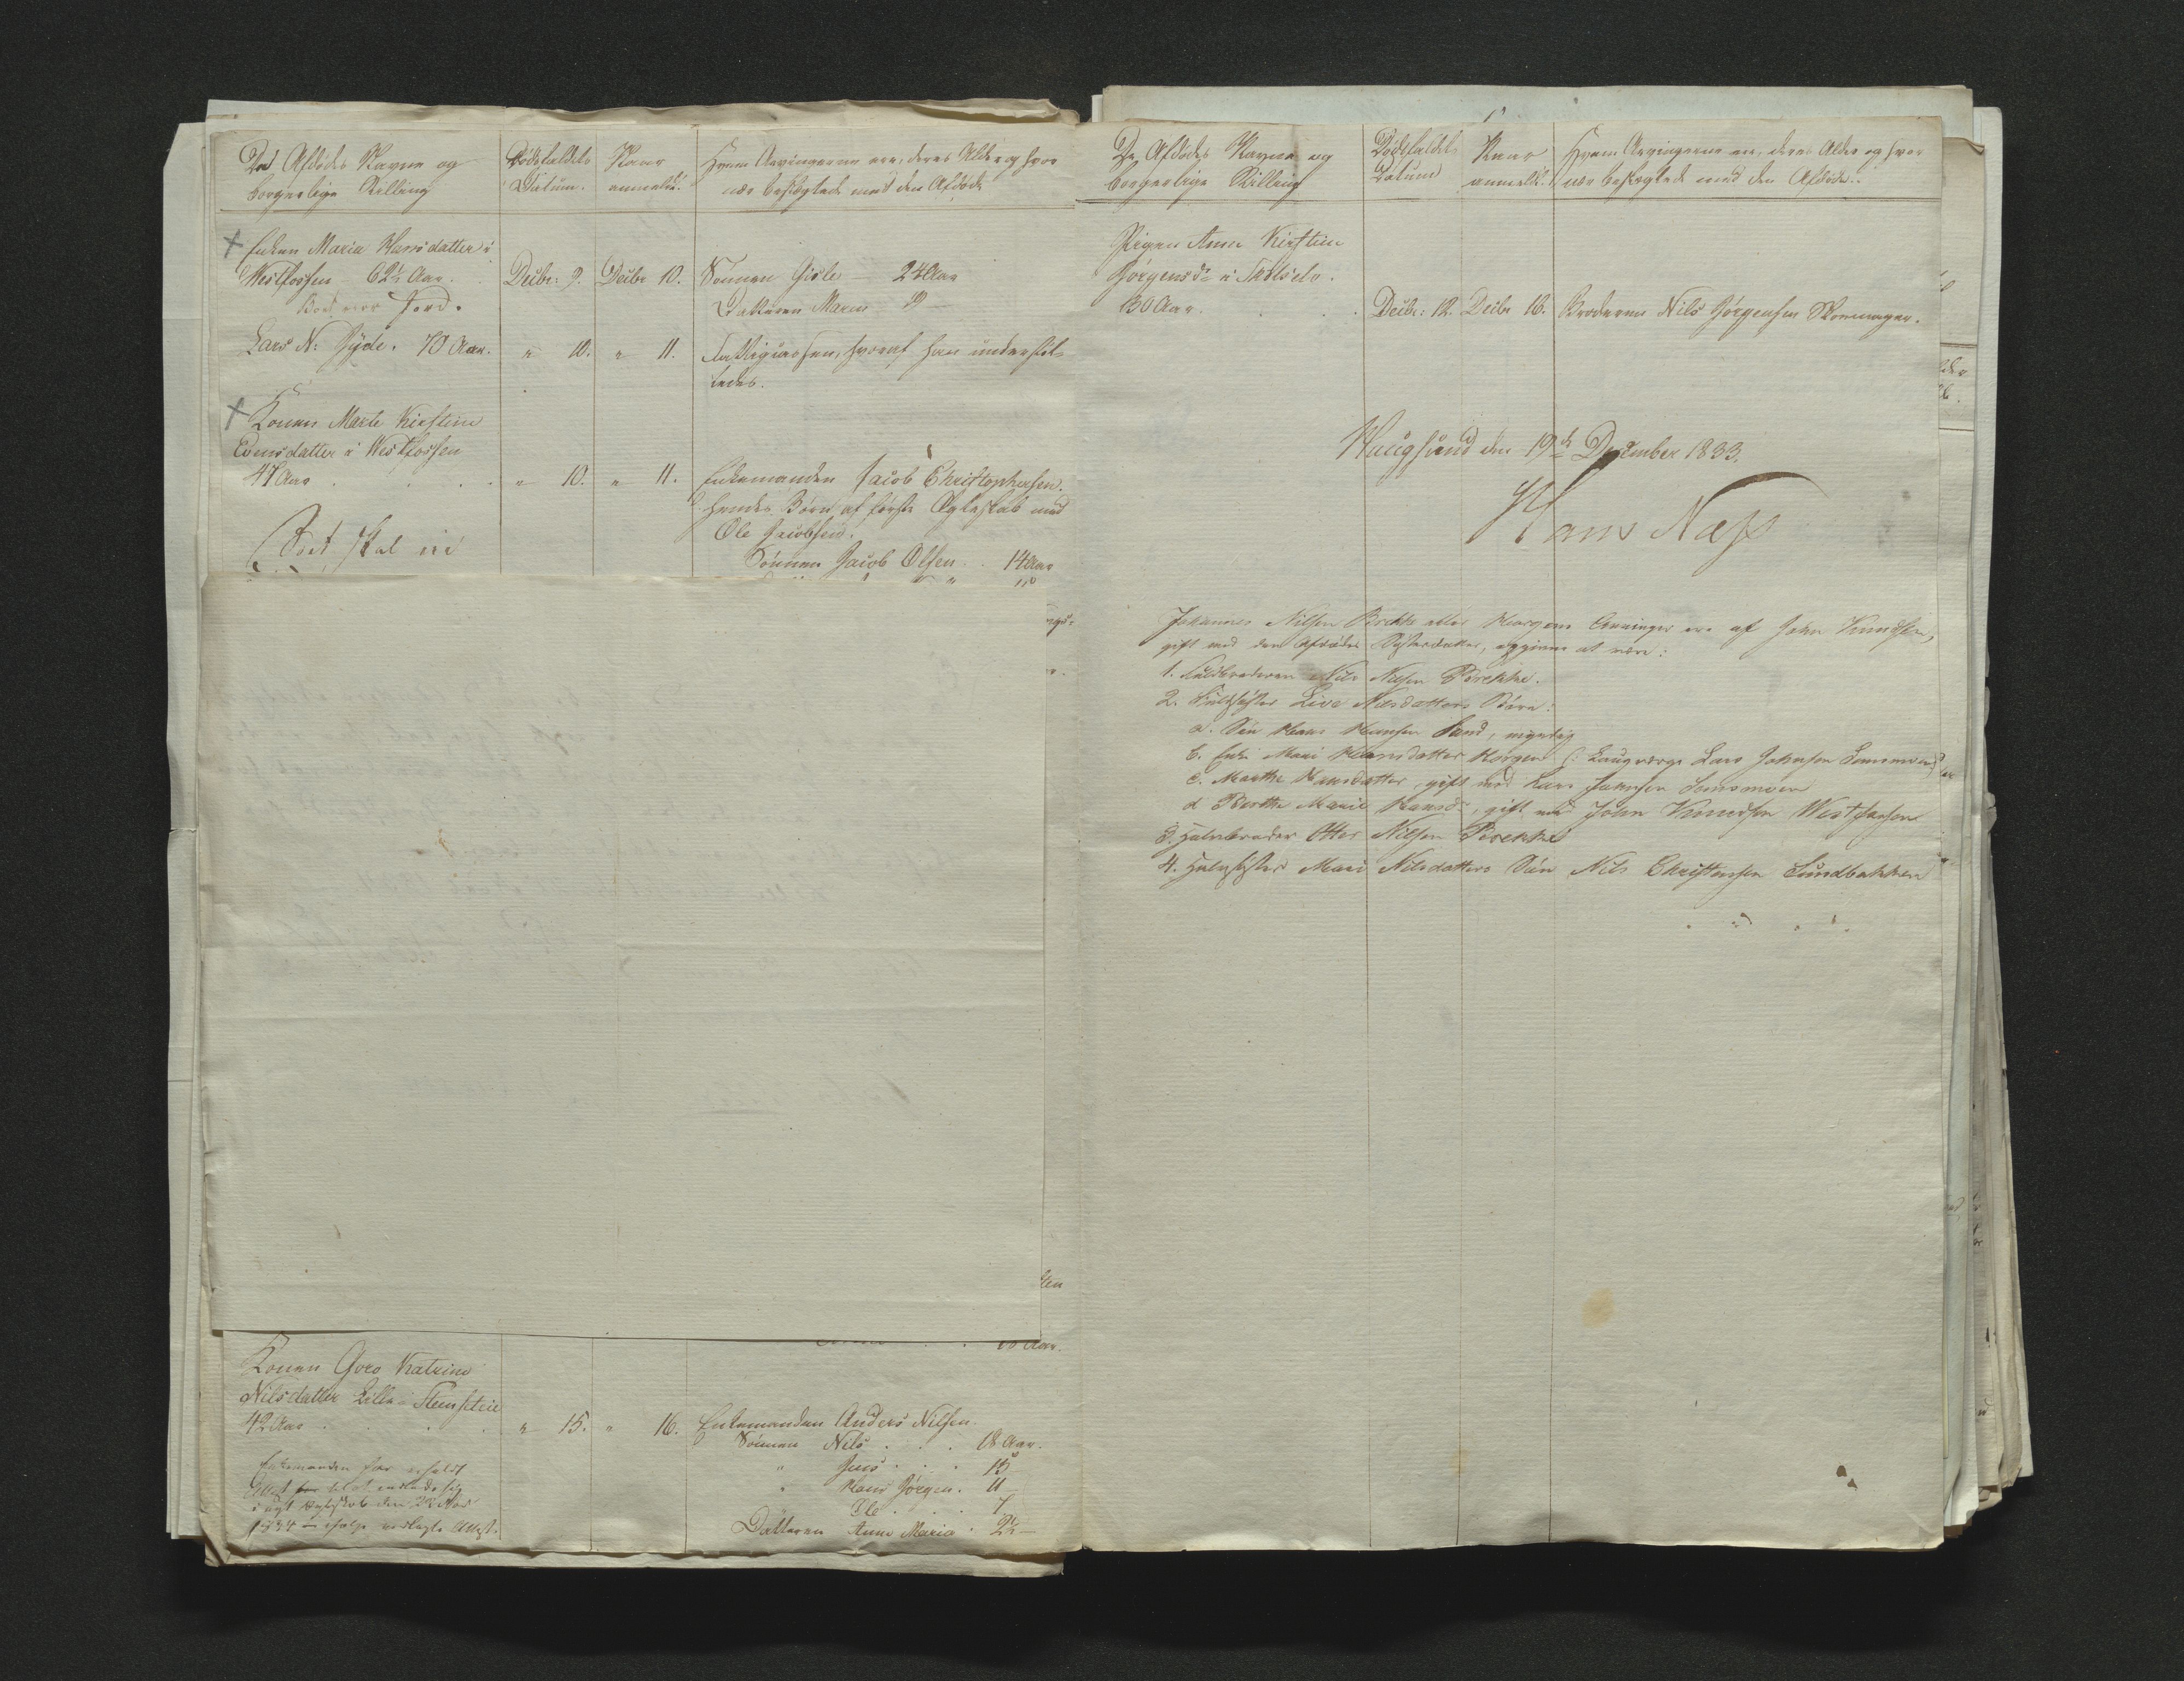 Den Afdødes Navne og
borgerlige Stilling
Dödsfaldets
Datum.
Naar
anmeldt.
Hvem Arvingerne ere, deres Alder og hvor
nær beslægtede med den Afdøde
Enken Maria Hansdatter i
Westfossen 62½ Aar.
Decbr: 9. Decbr 10. Sönnen Gisle 24 Aar
Datteren Maren 19 —
Lars N. 70 Aar.
" 10. " 11. Fattigkassen, hvoraf han understöt-
tedes.
Konen Marte Kirstine
Evensdatter i Westfossen
47 Aar
" 10. " 11. Enkemanden Jacob Christophersen.
Hendes Börn af förste Ægteskab med
Ole Jacobsen.
Sönnen Jacob Olsen. . 14 Aar
Boet skal
Konen Goro Katrine
Nilsdatter Lille-Steensetie
42 Aar
" 15. " 16. Enkemanden Anders Nilsen.
Sönnen Nils . . . 18 Aar.
" Jens . . . 15
" Hans Jørgen. 11
" Ole . . . 7
Datteren Anne Maria . 2½ —
Enkemanden har erholdt
Attest for til at indlade sig
i nyt Ægteskab den
De Afdødes Navne og
borgerlige Stilling
Dödsfaldets
Datum
Naar
anmeldt.
Hvem Arvingerne ere, deres Alder og hvor
nær beslægtede med den Afdöde.
Pigen Anne Kirstine
Jörgensdr i Skotselv.
30 Aar.
Decbr: 12. Decbr 16. Broderen Nils Jörgensen Skomager.
Haugsund den 19de December 1833.
Hans Næss
Johannes Nilsen Brekke eller Horgens Arvinger ere af John Knudsen,
gift med den Afdødes Søsterdatter, opgivne at være:
1. Fuldbroderen Nils Nilsen Brekke.
2. Fuldsöster Live Nilsdatters Börn:
a. Sön Hans Hansen Sand, myndig
b. Enke Mari Hansdatter Horgen (: Laugværge Lars Johnsen
c. Marthe Hansdatter, gift med Lars Johnsen
d. Berthe Marie Hansdr, gift med John Knudsen Westfossen
3. Halvbroder Otter Nilsen Brekke
4. Halvsøster Mari Nilsdatters Sön Nils Christensen Sundbakken